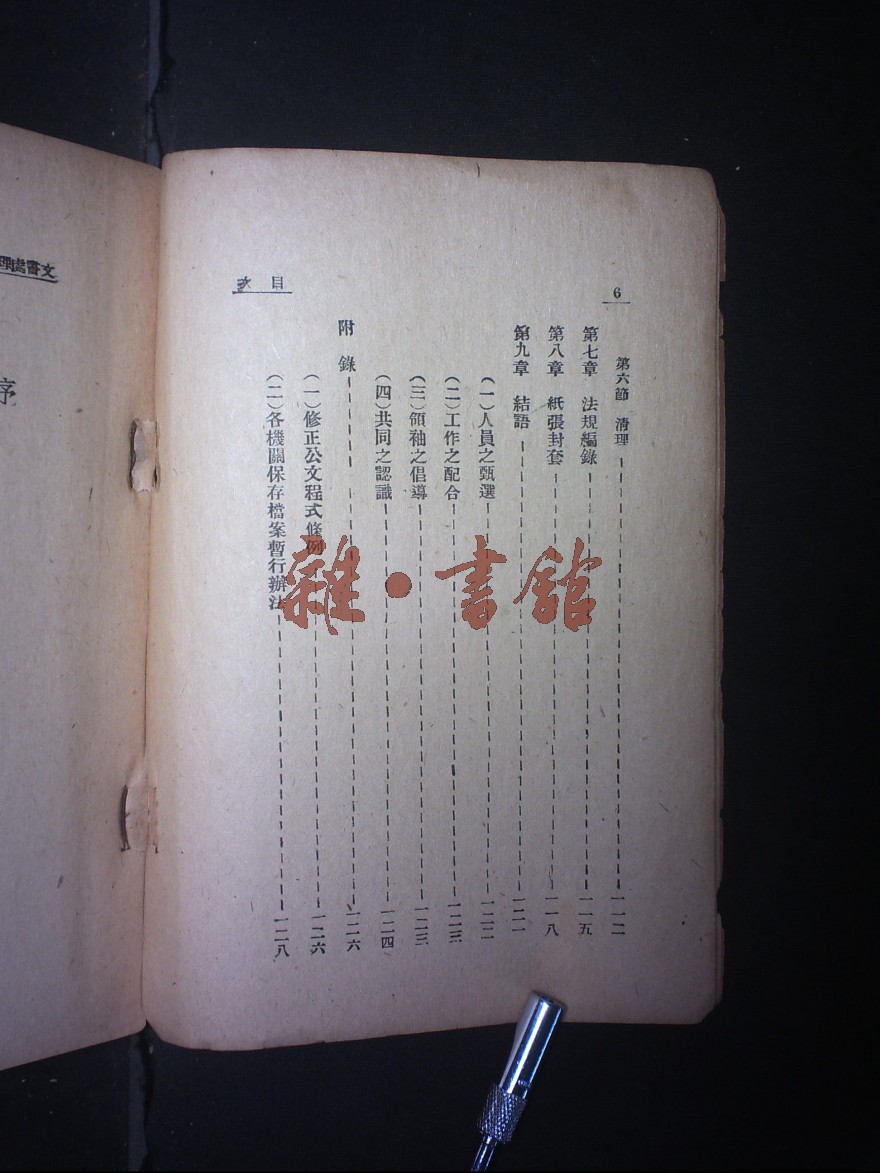 6
目次
第六節 清理 一一二
第七章 法規編錄 一一五
第八章 紙張封套 一一八
第九章 結語 一二一
（一）人員之甄選 一二二
（二）工作之配合 一二三
（三）領袖之倡導 一二三
（四）共同之認識 一二四
附錄 一二六
（一）修正公文程式條例 一二六
（二）各機關保存檔案暫行辦法 一二八
雜·書館
文書處理
序